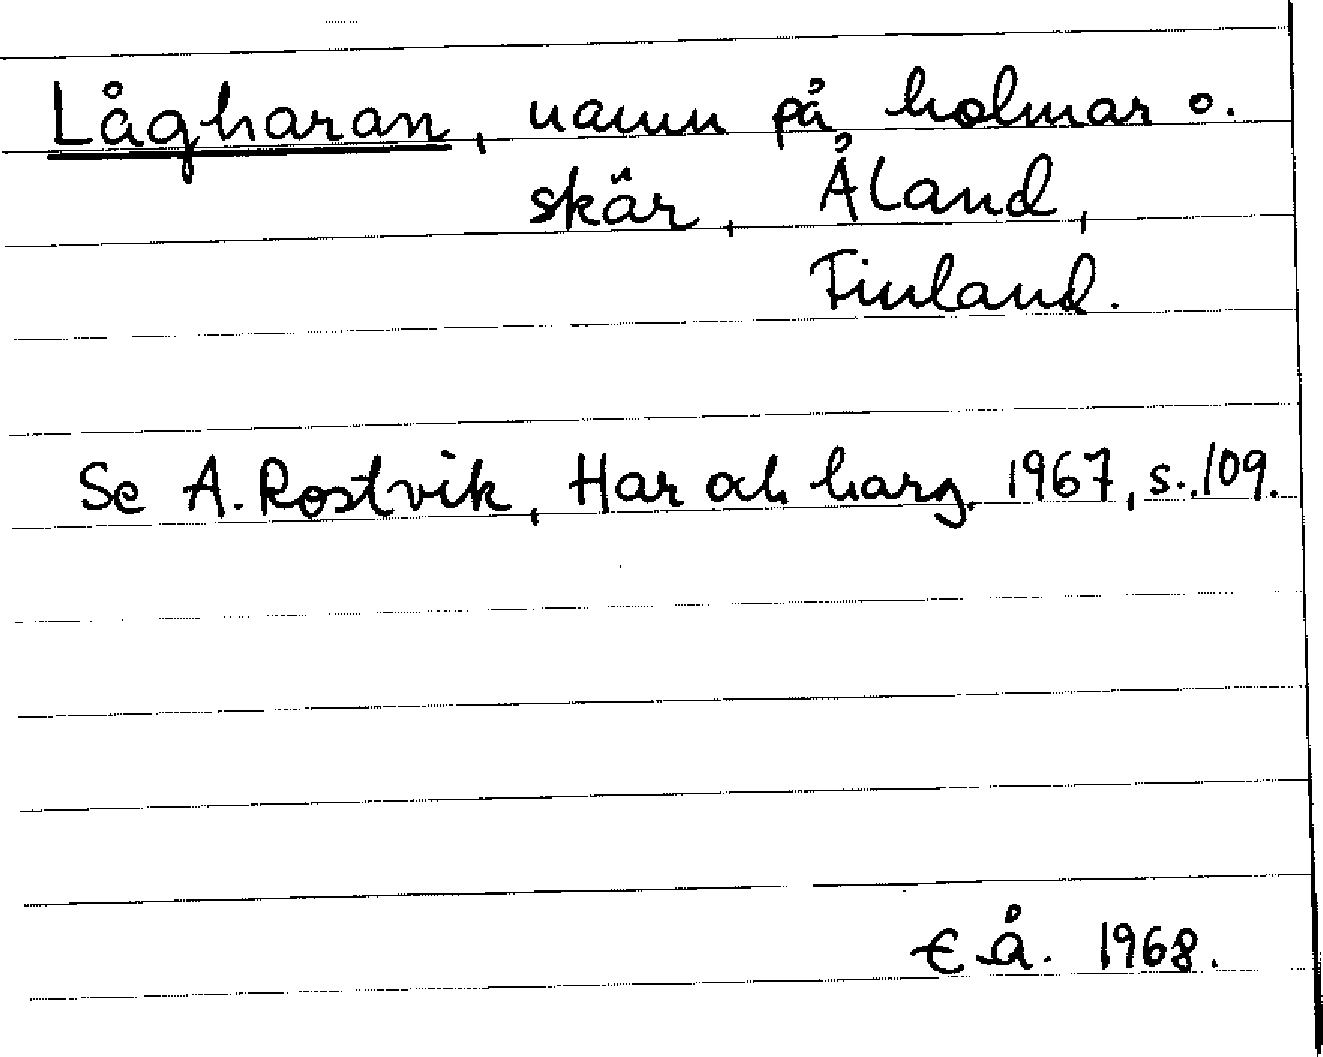 Lågharan, namn på holmar o.
skär, Åland,
Finland.
Se A. Rostvik, Har och harg. 1967, s. 109.
E Å. 1968.